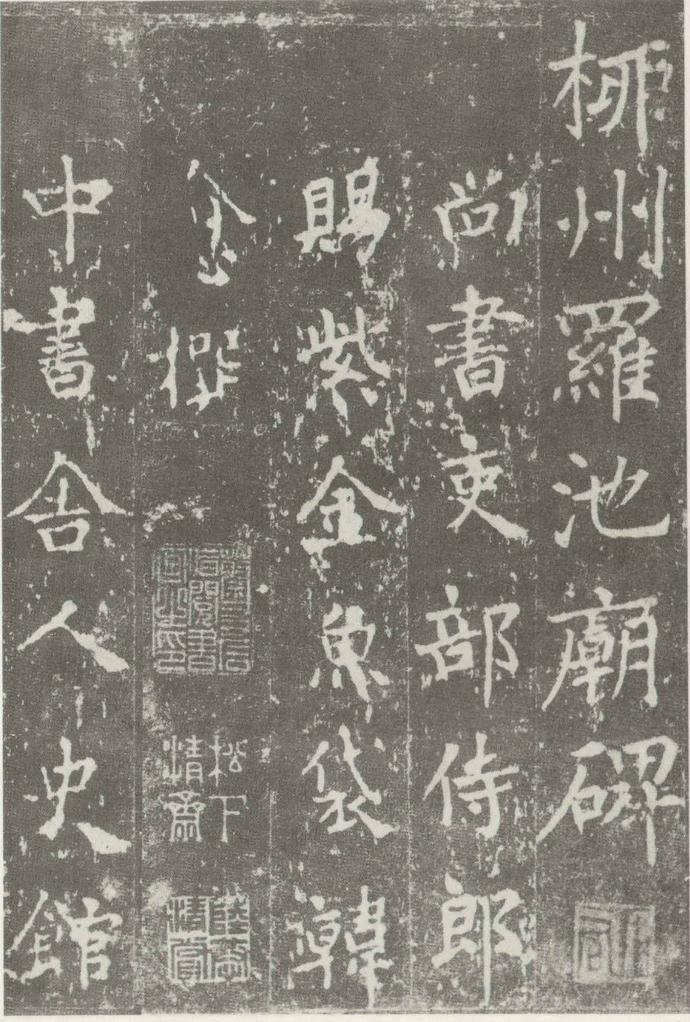 柳州羅池廟碑
尚書吏部侍郎
賜紫金魚袋韓
愈撰
松下
清齋
陸恭
清賞
中書舍人史館